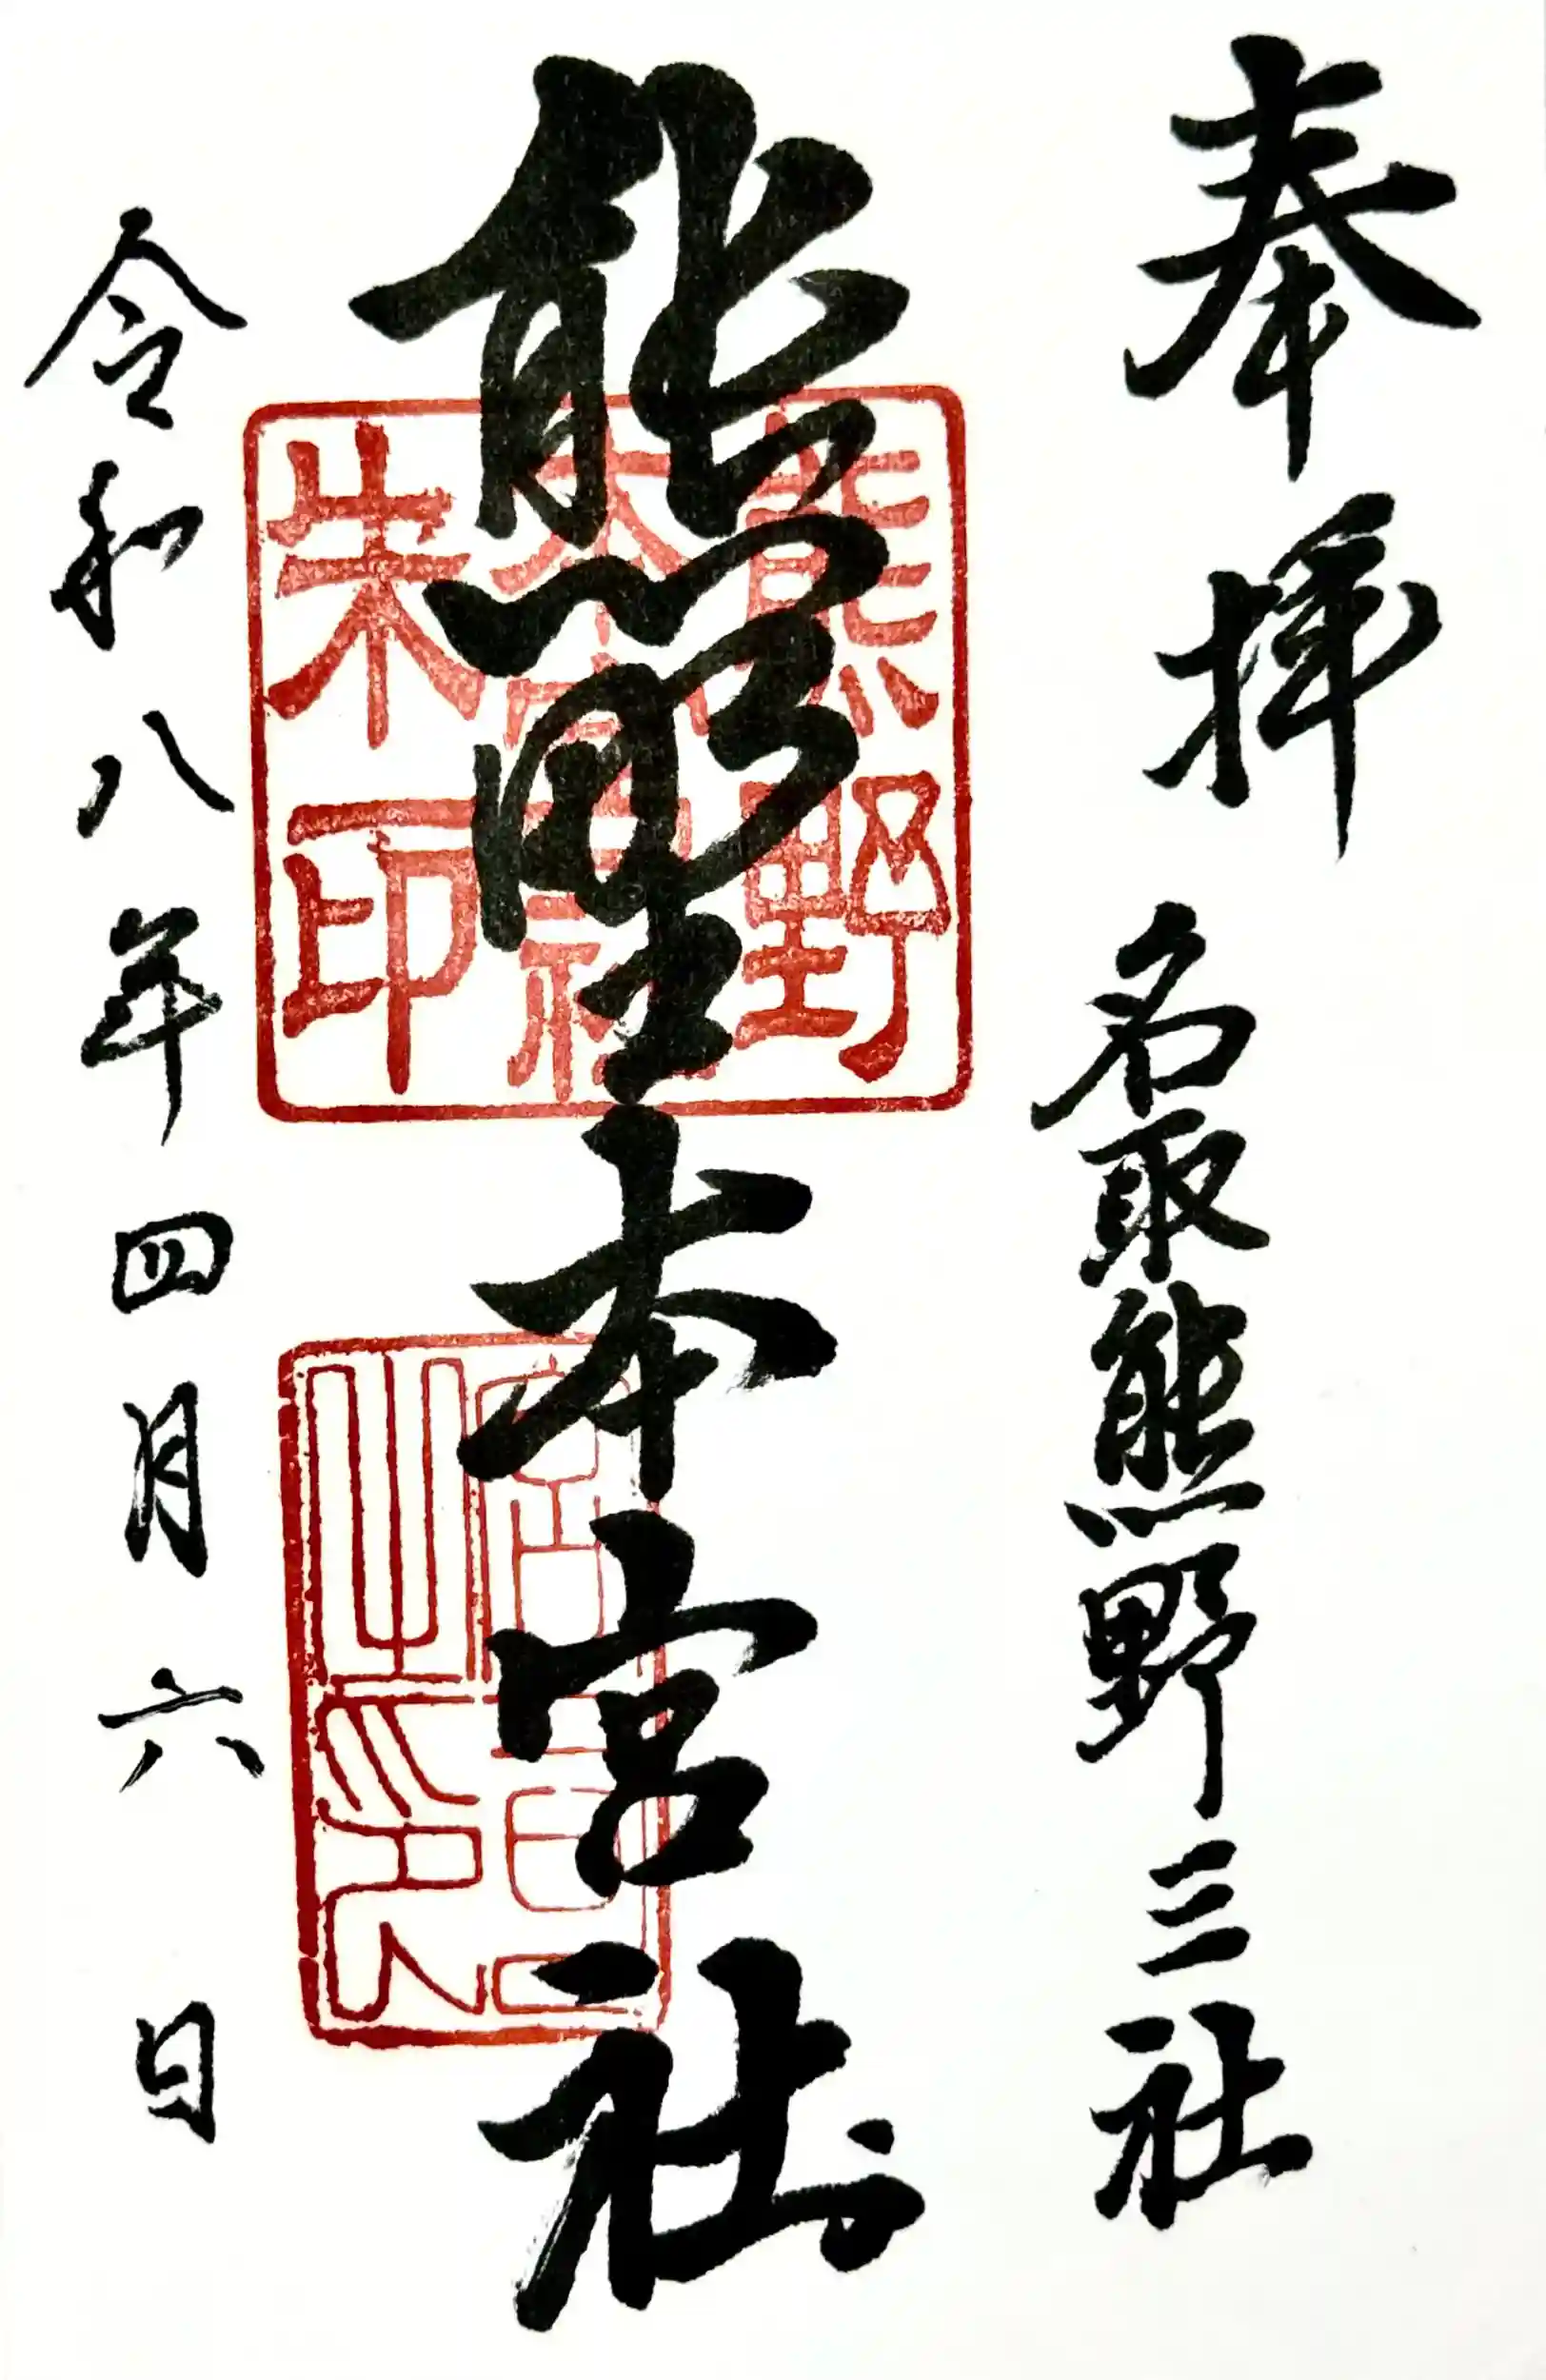 奉拝 名取熊野三社
熊野本宮社
熊野
本宮社
朱印
令和八年四月六日